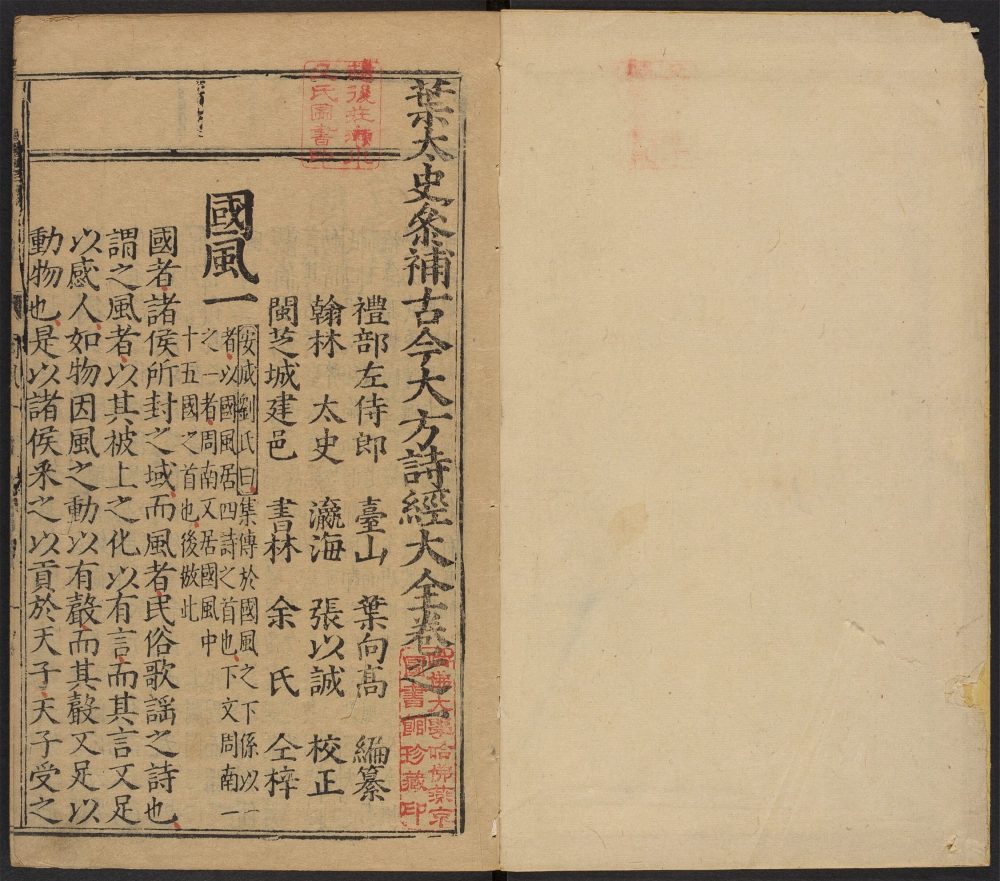 葉太史叅補古今大方詩經大全卷之一
禮部左侍郎 臺山 葉向高 編纂
翰林 太史 瀛海 張以誠 校正
閩芝城建邑 書林 余氏 仝梓
國風一
安成劉氏曰集傳於國風之下係以一
者以國風居四詩之首也下文周南一
之一者周南又居國風中
十五國之首也後倣此
國者諸侯所封之域而風者民俗歌謡之詩也
謂之風者以其被上之化以有言而其言又足
以感人如物因風之動以有聲而其聲又足以
動物也是以諸侯釆之以貢於天子天子受之
哈佛大學哈佛燕京
圖書館珍藏印
氏圖書